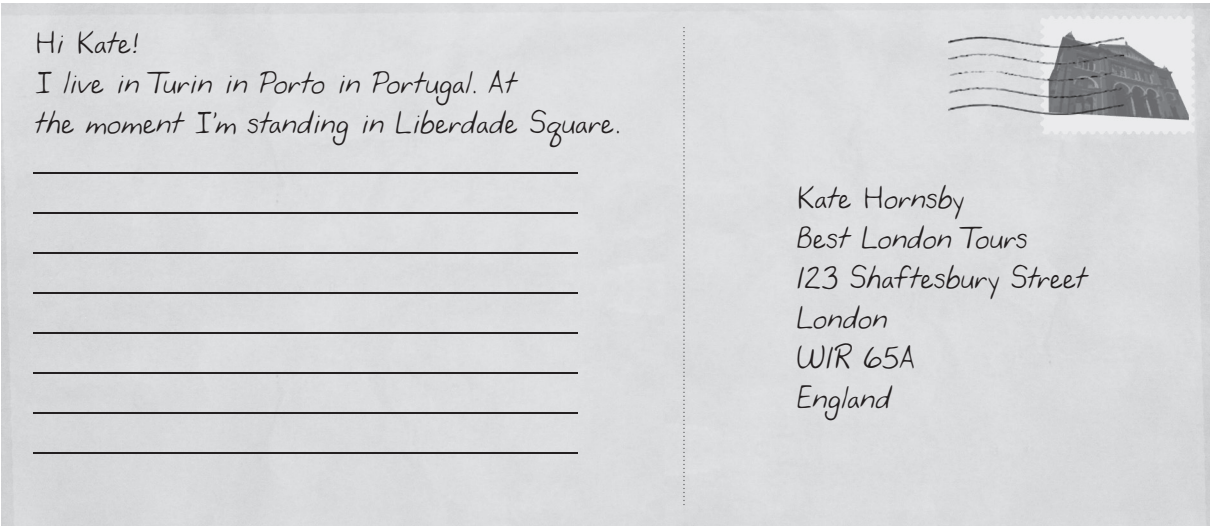 Hi Kate!
I live in Turin in Porto in Portugal. At
the moment I'm standing in Liberdade Square.
Kate Hornsby
Best London Tours
123 Shaftesbury Street
London
W1R 65A
England